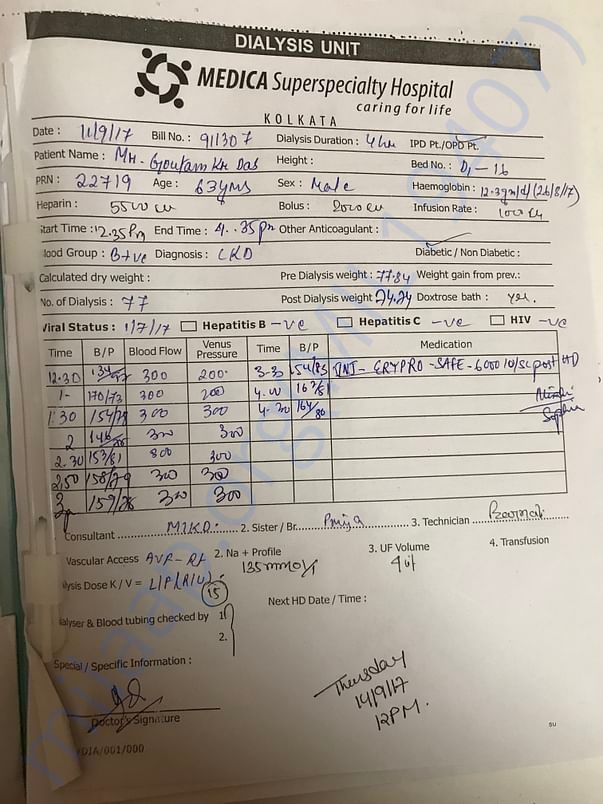 DIALYSIS UNIT
MEDICA Superspecialty Hospital
caring for life
KOLKATA
Date : 11/9/17 Bill No. : 911307 Dialysis Duration : 4 hr IPD Pt./OPD Pt.
Patient Name : Mr. Goutam Kr Das Height : Bed No. : D1 - 16
PRN : 22719 Age : 63 yrs Sex : Male Haemoglobin : 12.3 gm/dl (26/8/17)
Heparin : 5500 cu Bolus : 2000 cu Infusion Rate : 1000 cu
Start Time : 12.35 Pm End Time : 4.35 pm Other Anticoagulant :
Blood Group : B+ve Diagnosis : CKD Diabetic / Non Diabetic :
Calculated dry weight : Pre Dialysis weight : 77.84 Weight gain from prev.:
No. of Dialysis : 77 Post Dialysis weight 74.24 Doxtrose bath : yes.
Viral Status : 1/7/17 Hepatitis B -ve Hepatitis C -ve HIV -ve
Time B/P Blood Flow Venus Pressure Time B/P Medication
12.30 300 200 3.30 154/83 INJ - ERYPRO - SAFE - 6000 IU/SC post HD
1- 170/73 300 200 4.00 163/81
1.30 154/78 300 300 4.30 164/80
2 300 300
2.30 153/81 300 300
2.50 158/79 300 300
3 159/78 300 300
Consultant MIKD. 2. Sister / Br. Priya 3. Technician
Vascular Access AVF - Rt 2. Na + Profile 135 mmol/l 3. UF Volume 4 lit 4. Transfusion
lysis Dose K / V = L/P (R/U) 15
Next HD Date / Time :
alyser & Blood tubing checked by 1.
2.
Special / Specific Information :
Thursday
14/9/17
12 PM.
Doctor's Signature
/DIA/001/000
SU
milaap.org/ (MIL 19407)